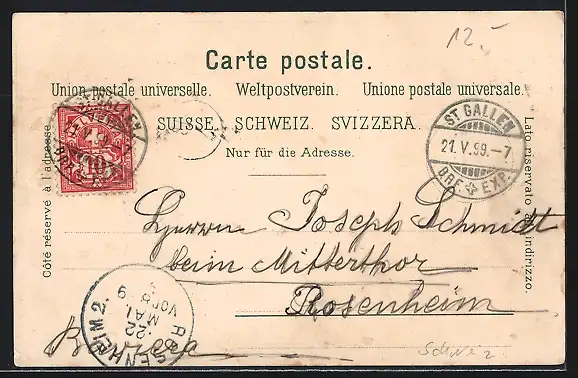 12.-
Carte postale.
Union postale universelle. Weltpostverein. Unione postale universale.
SUISSE. SCHWEIZ. SVIZZERA.
Nur für die Adresse.
Côté réservé à l'adresse.
Lato riservato all'indirizzo.
ST GALLEN
21.V.99.-7
BRF. EXP.
ST GALLEN
10
Herrn Joseph Schmidt
beim Mitterthor
Rosenheim
ROSENHEIM 2.
22
MAI
Schweiz